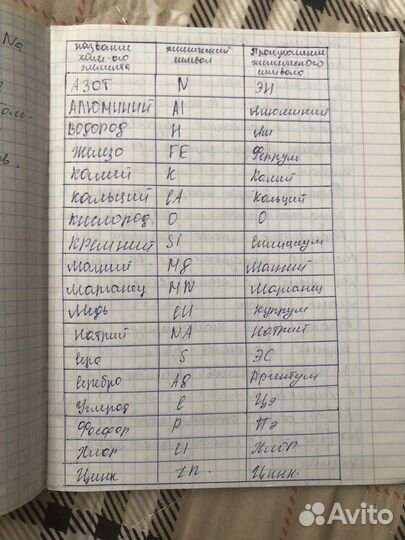 Na
оль.
ов,
название хим-ого элемента | химический символ | Произношение химического символа
АЗОТ N ЭН
АЛЮМИНИЙ Al Алюминий
ВОДОРОД H Аш
Железо FE Феррум
Калий K Калий
Кальций CA Кальций
КИСЛОРОД O О
КРЕМНИЙ Si Силициум
Магний Mg Магний
Марганец MN Марганец
Медь CU Купрум
Натрий NA Натрий
Сера S ЭС
Серебро Ag Аргентум
Углерод C Цэ
Фосфор P Пэ
Хлор Cl Хлор
Цинк Zn. Цинк.
Avito